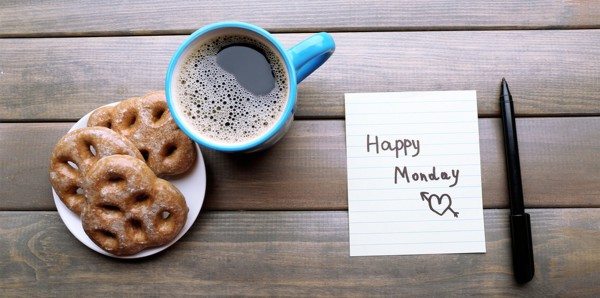 Happy
Monday